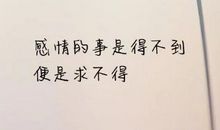 感情的事是得不到
便是求不得